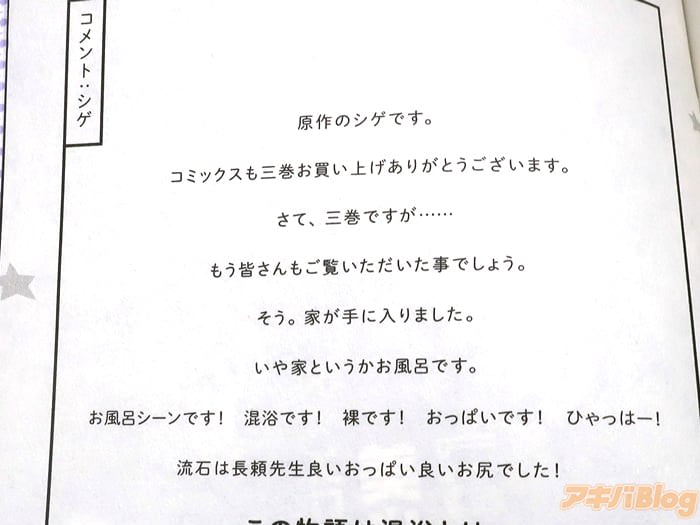 コメント：シゲ
原作のシゲです。
コミックスも三巻お買い上げありがとうございます。
さて、三巻ですが……
もう皆さんもご覧いただいた事でしょう。
そう。家が手に入りました。
いや家というかお風呂です。
お風呂シーンです！　混浴です！　裸です！　おっぱいです！　ひゃっはー！
流石は長頼先生良いおっぱい良いお尻でした！
この物語は混浴とは
アキバBlog